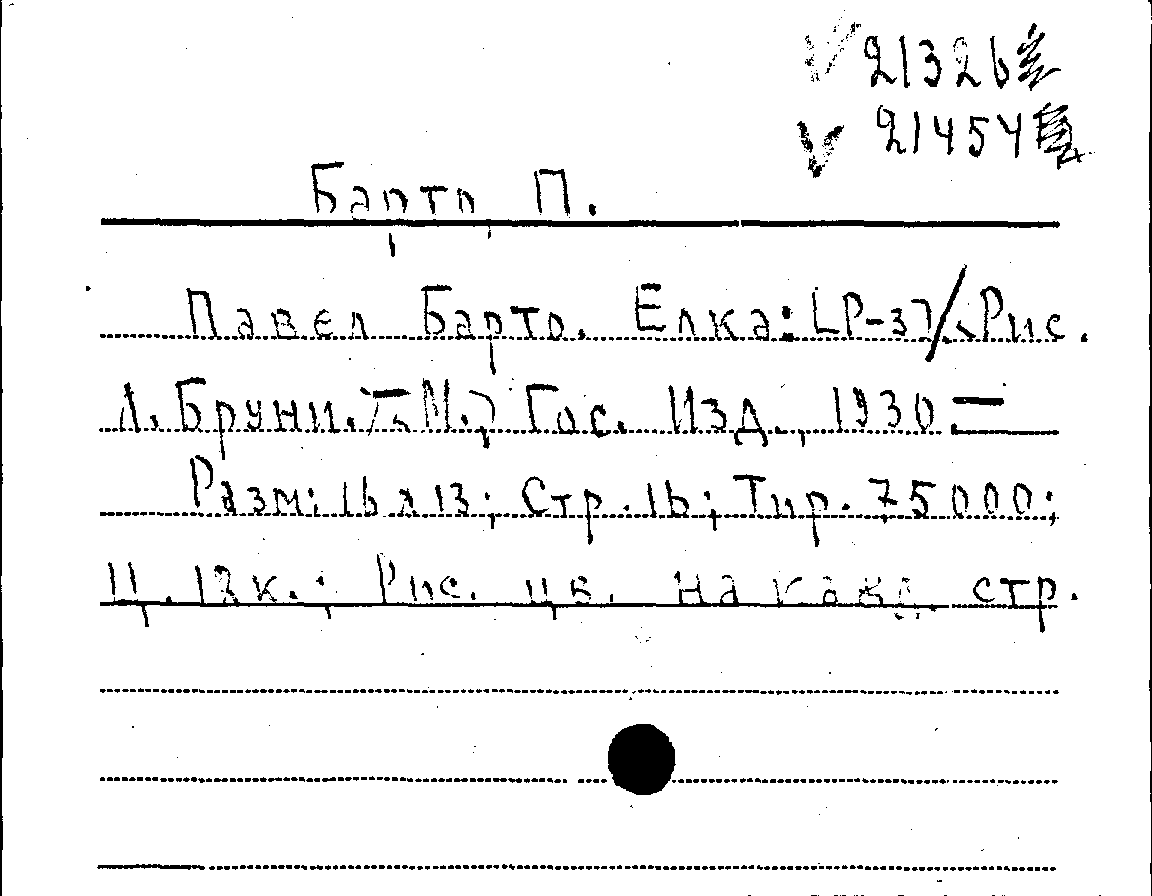 21326
21454
Барто, П.
Павел Барто. Елка: LP-37/. Рис.
Л. Бруни. – М., Гос. Изд., 1930. =
Разм: 16 x 13; Стр. 16; Тир. 75000;
Ц. 12к.; Рис. цв. на кажд. стр.